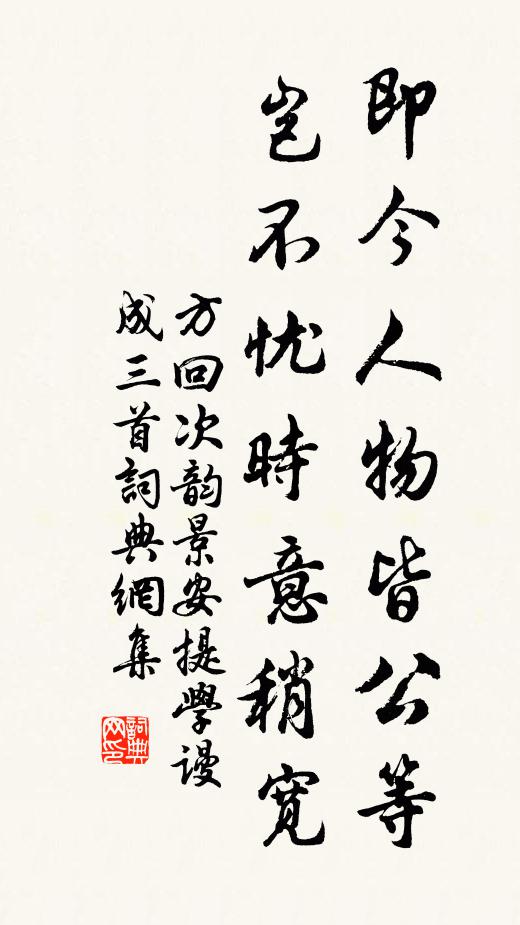 即今人物皆公等
岂不忧時意稍寛
方回次韵景安提學谩
成三首詞典網集
詞典
网印